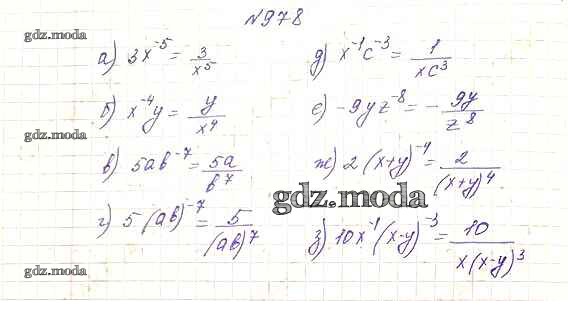 №978
gdz.moda
а) 3x⁻⁵ = 3/x⁵
д) x⁻¹c⁻³ = 1/xc³
gdz.moda
б) x⁻⁴y = y/x⁴
е) -9yz⁻⁸ = -9y/z⁸
gdz.moda
в) 5ab⁻⁷ = 5a/b⁷
ж) 2(x+y)⁻⁴ = 2/(x+y)⁴
gdz.moda
gdz.moda
г) 5(ab)⁻⁷ = 5/(ab)⁷
з) 10x⁻¹(x-y)⁻³ = 10/x(x-y)³
gdz.moda